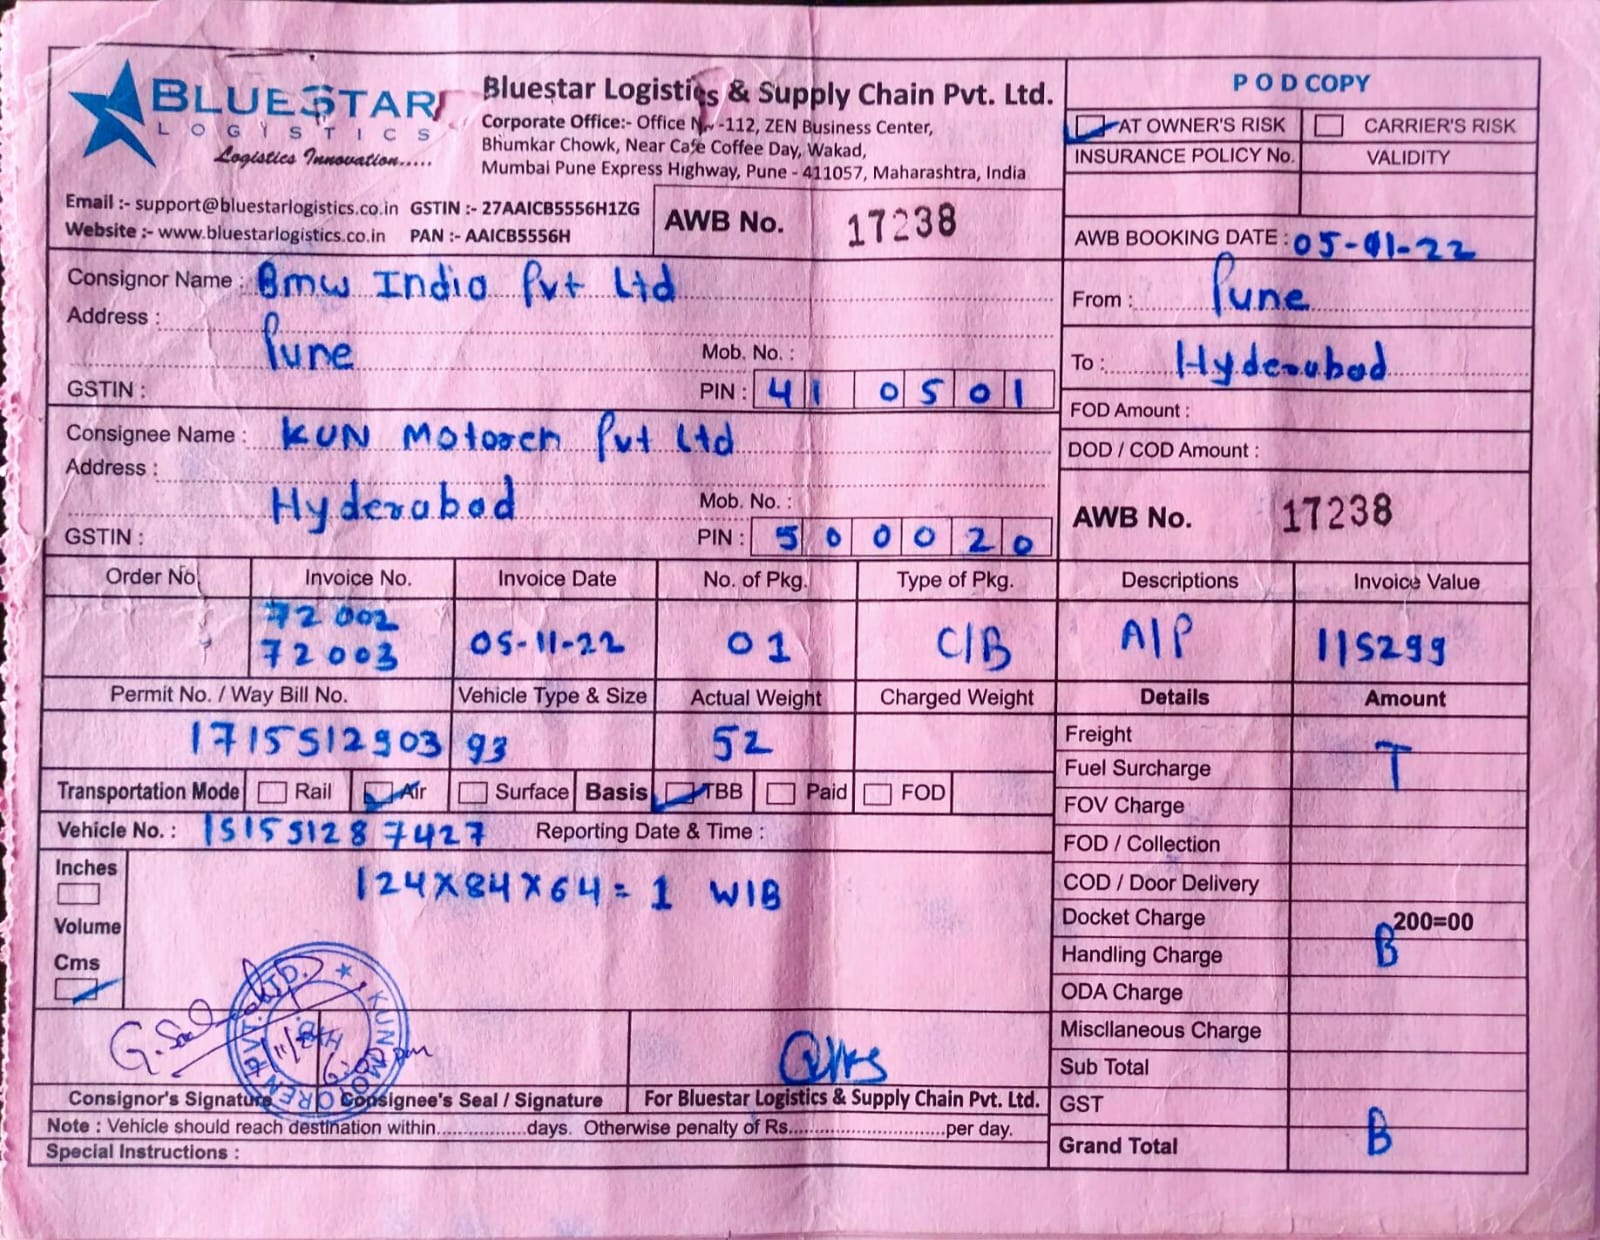 BLUESTAR
LOGISTICS
Logistics Innovation.....
Bluestar Logistics & Supply Chain Pvt. Ltd.
Corporate Office:- Office -112, ZEN Business Center,
Bhumkar Chowk, Near Cafe Coffee Day, Wakad,
Mumbai Pune Express Highway, Pune - 411057, Maharashtra, India
Email :- support@bluestarlogistics.co.in GSTIN :- 27AAICB5556H1ZG
Website :- www.bluestarlogistics.co.in PAN :- AAICB5556H
AWB No. 17238
POD COPY
AT OWNER'S RISK CARRIER'S RISK
INSURANCE POLICY No. VALIDITY
AWB BOOKING DATE : 05-01-22
Consignor Name : Bmw India Pvt Ltd
Address :
Pune
Mob. No. :
GSTIN : PIN : 410501
From : Pune
To : Hyderabad
FOD Amount :
DOD / COD Amount :
Consignee Name : KUN Motoren Pvt Ltd
Address :
Hyderabad
Mob. No. :
GSTIN : PIN : 500020
AWB No. 17238
Order No. Invoice No. Invoice Date No. of Pkg. Type of Pkg. Descriptions Invoice Value
72002
72003 05-11-22 01 C/B A/P 115299
Permit No. / Way Bill No. Vehicle Type & Size Actual Weight Charged Weight Details Amount
171551290393 52
Transportation Mode Rail Air Surface Basis TBB Paid FOD
Vehicle No. : 151551287427 Reporting Date & Time :
Inches
Volume
Cms
124X84X64= 1 WIB
Freight
Fuel Surcharge T
FOV Charge
FOD / Collection
COD / Door Delivery
Docket Charge 200=00
Handling Charge B
ODA Charge
Miscllaneous Charge
Sub Total
GST
Grand Total B
KUN MOTOREN PVT. LTD.
HYD.
Consignor's Signature Consignee's Seal / Signature For Bluestar Logistics & Supply Chain Pvt. Ltd.
Note : Vehicle should reach destination within................days. Otherwise penalty of Rs...........................per day.
Special Instructions :